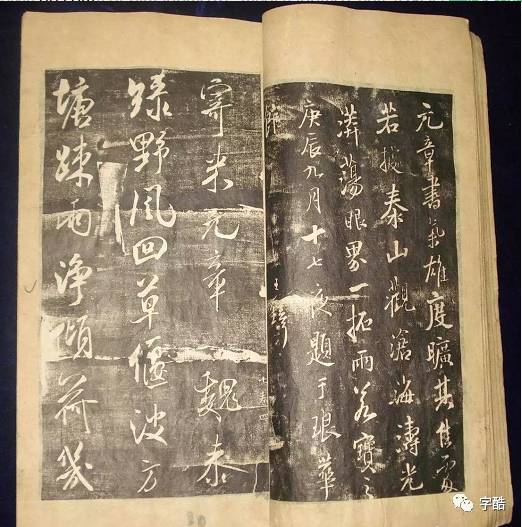 元章書氣雄度曠其佳處
若披泰山觀滄海濤光
漭蕩眼界一拓雨若寶之
庚辰九月十七夜題于琅華
寄米元章 魏泰
綠野風回草偃波方
塘疎雨淨傾荷幾
字酷